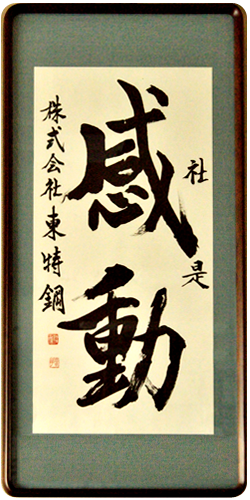 社是
感動
株式会社東特鋼